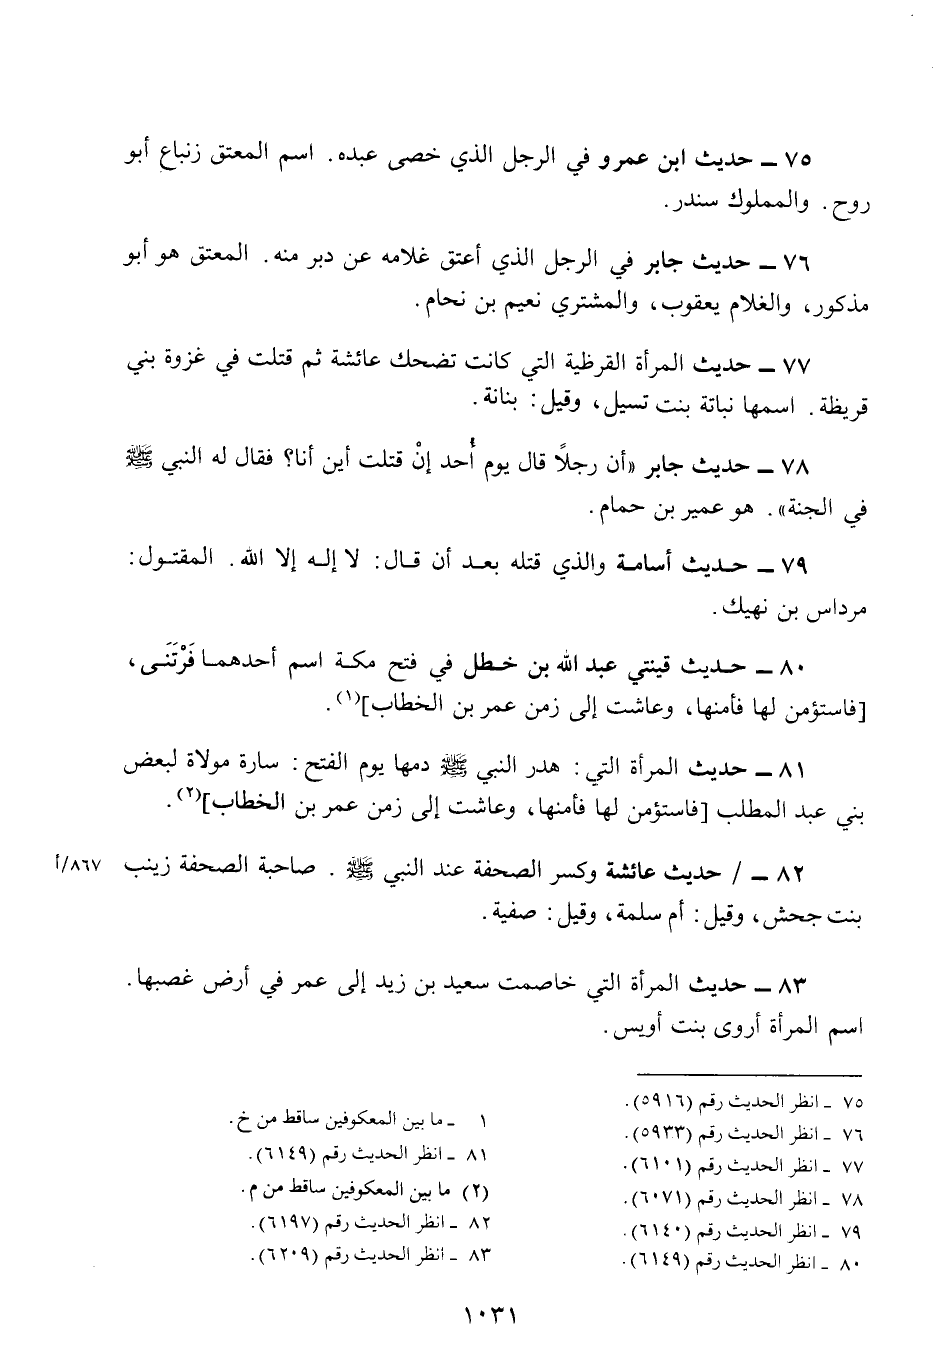 ٧٥ ـ حديث ابن عمرو في الرجل الذي خصى عبده. اسم المعتق زنباع أبو
روح. والمملوك سندر.
٧٦ ـ حديث جابر في الرجل الذي أعتق غلامه عن دبر منه. المعتق هو أبو
مذكور، والغلام يعقوب، والمشتري نعيم بن نحام.
٧٧ ـ حديث المرأة القرظية التي كانت تضحك عائشة ثم قتلت في غزوة بني
قريظة. اسمها نباتة بنت تسيل، وقيل: بنانة.
٧٨ ـ حديث جابر «أن رجلاً قال يوم أُحد إنْ قتلت أين أنا؟ فقال له النبي ﷺ
في الجنة». هو عمير بن حمام.
٧٩ ـ حديث أسامة والذي قتله بعد أن قال: لا إله إلا الله. المقتول:
مرداس بن نهيك.
٨٠ ـ حديث قينتي عبد الله بن خطل في فتح مكة اسم أحدهما فَرْتَنَى،
[فاستؤمن لها فأمنها، وعاشت إلى زمن عمر بن الخطاب](١).
٨١ ـ حديث المرأة التي: هدر النبي ﷺ دمها يوم الفتح: سارة مولاة لبعض
بني عبد المطلب [فاستؤمن لها فأمنها، وعاشت إلى زمن عمر بن الخطاب](٢).
٨٢ ـ / حديث عائشة وكسر الصحفة عند النبي ﷺ. صاحبة الصحفة زينب ٨٦٧/أ
بنت جحش، وقيل: أم سلمة، وقيل: صفية.
٨٣ ـ حديث المرأة التي خاصمت سعيد بن زيد إلى عمر في أرض غصبها.
اسم المرأة أروى بنت أويس.
٧٥ ـ انظر الحديث رقم (٥٩١٦).
٧٦ ـ انظر الحديث رقم (٥٩٣٣).
٧٧ ـ انظر الحديث رقم (٦١٠١).
٧٨ ـ انظر الحديث رقم (٦٠٧١).
٧٩ ـ انظر الحديث رقم (٦١٤٠).
٨٠ ـ انظر الحديث رقم (٦١٤٩).
١ ـ ما بين المعكوفين ساقط من خ.
٨١ ـ انظر الحديث رقم (٦١٤٩).
(٢) ما بين المعكوفين ساقط من م.
٨٢ ـ انظر الحديث رقم (٦١٩٧).
٨٣ ـ انظر الحديث رقم (٦٢٠٩).
١٠٣١